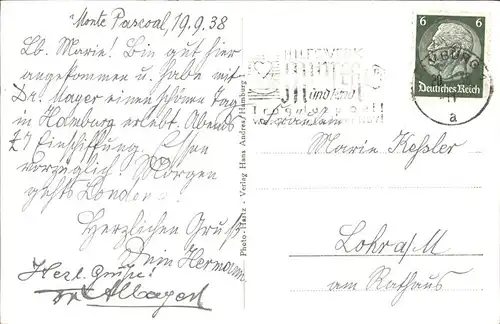 Monte Pascoal, 19.9.38
Lb. Marie! Bin gut hier
angekommen u. habe mit
Dr. Mayer einen schönen Tag
in Hamburg erlebt. Abends
Einschiffung. Essen
vorzüglich. Morgen
gehts London
Herzlichen Gruß
Dein Hermann
Herzl. Grüße!
Photo-Hartz - Verlag Hans Andres, Hamburg 1
6 6
Deutsches Reich
a
WINTER
Mund und
Fräulein
Marie Kessler
Lohr a/M
am Rathaus